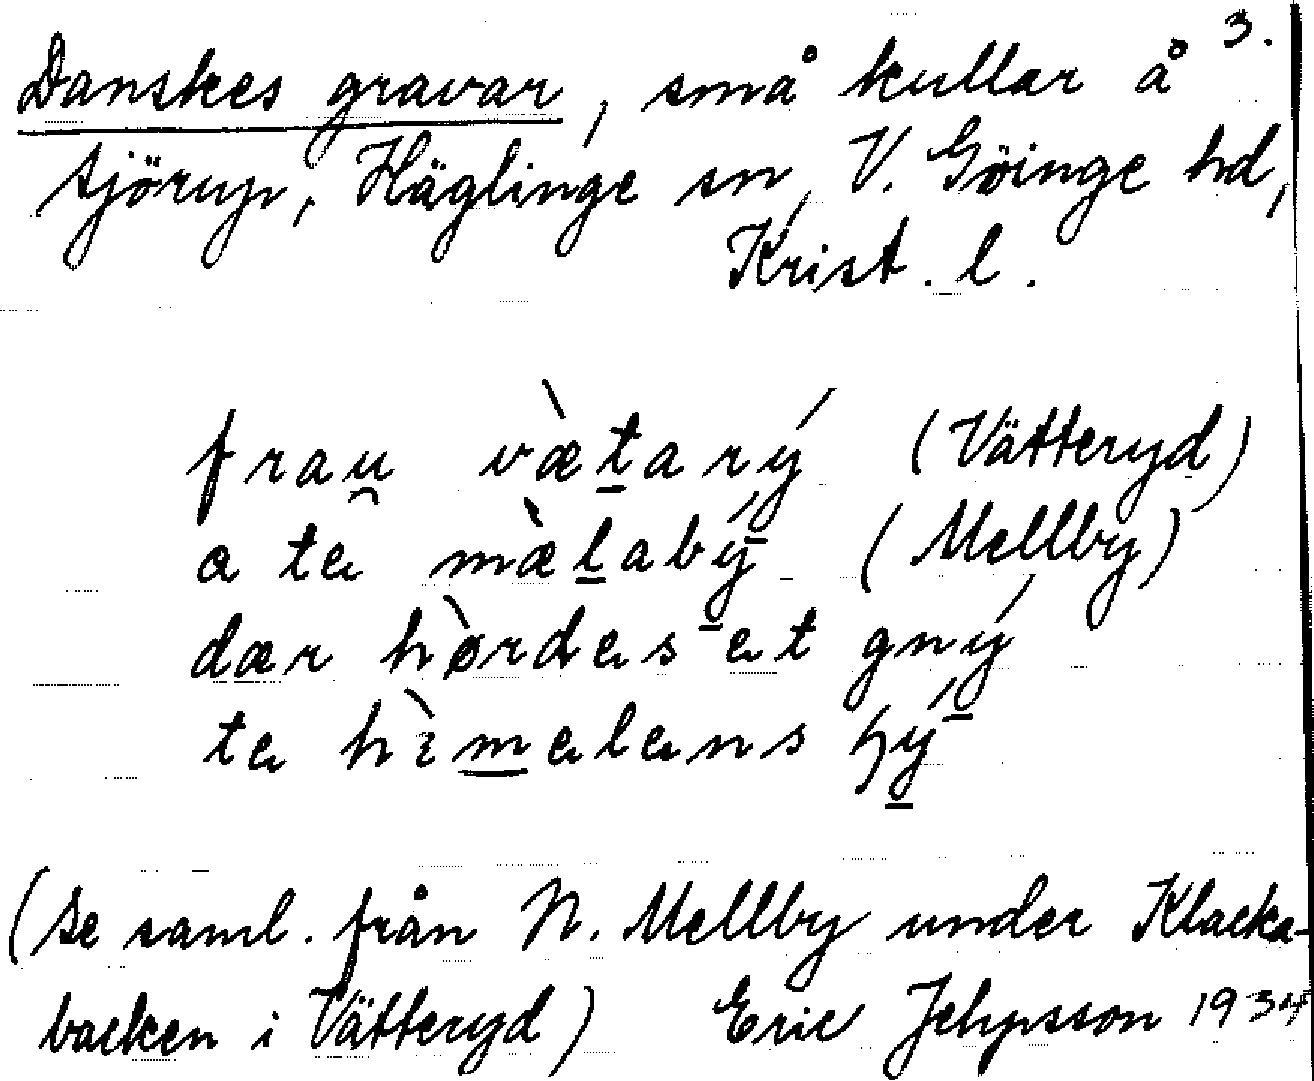 3.
Danskes gravar, små kullar å
Tjörup, Häglinge sn, V. Göinge hd,
Krist. l.
frau̯ væ̀t̲arý (Vätteryd)
a tə mæ̀l̲abý̲ (Mellby)
dær hø̀rdəs ət gný̲
tə hìm̲ələns hý̲
(Se saml. från N. Mellby under Klacka-
backen i Vätteryd) Eric Jehpsson 1934